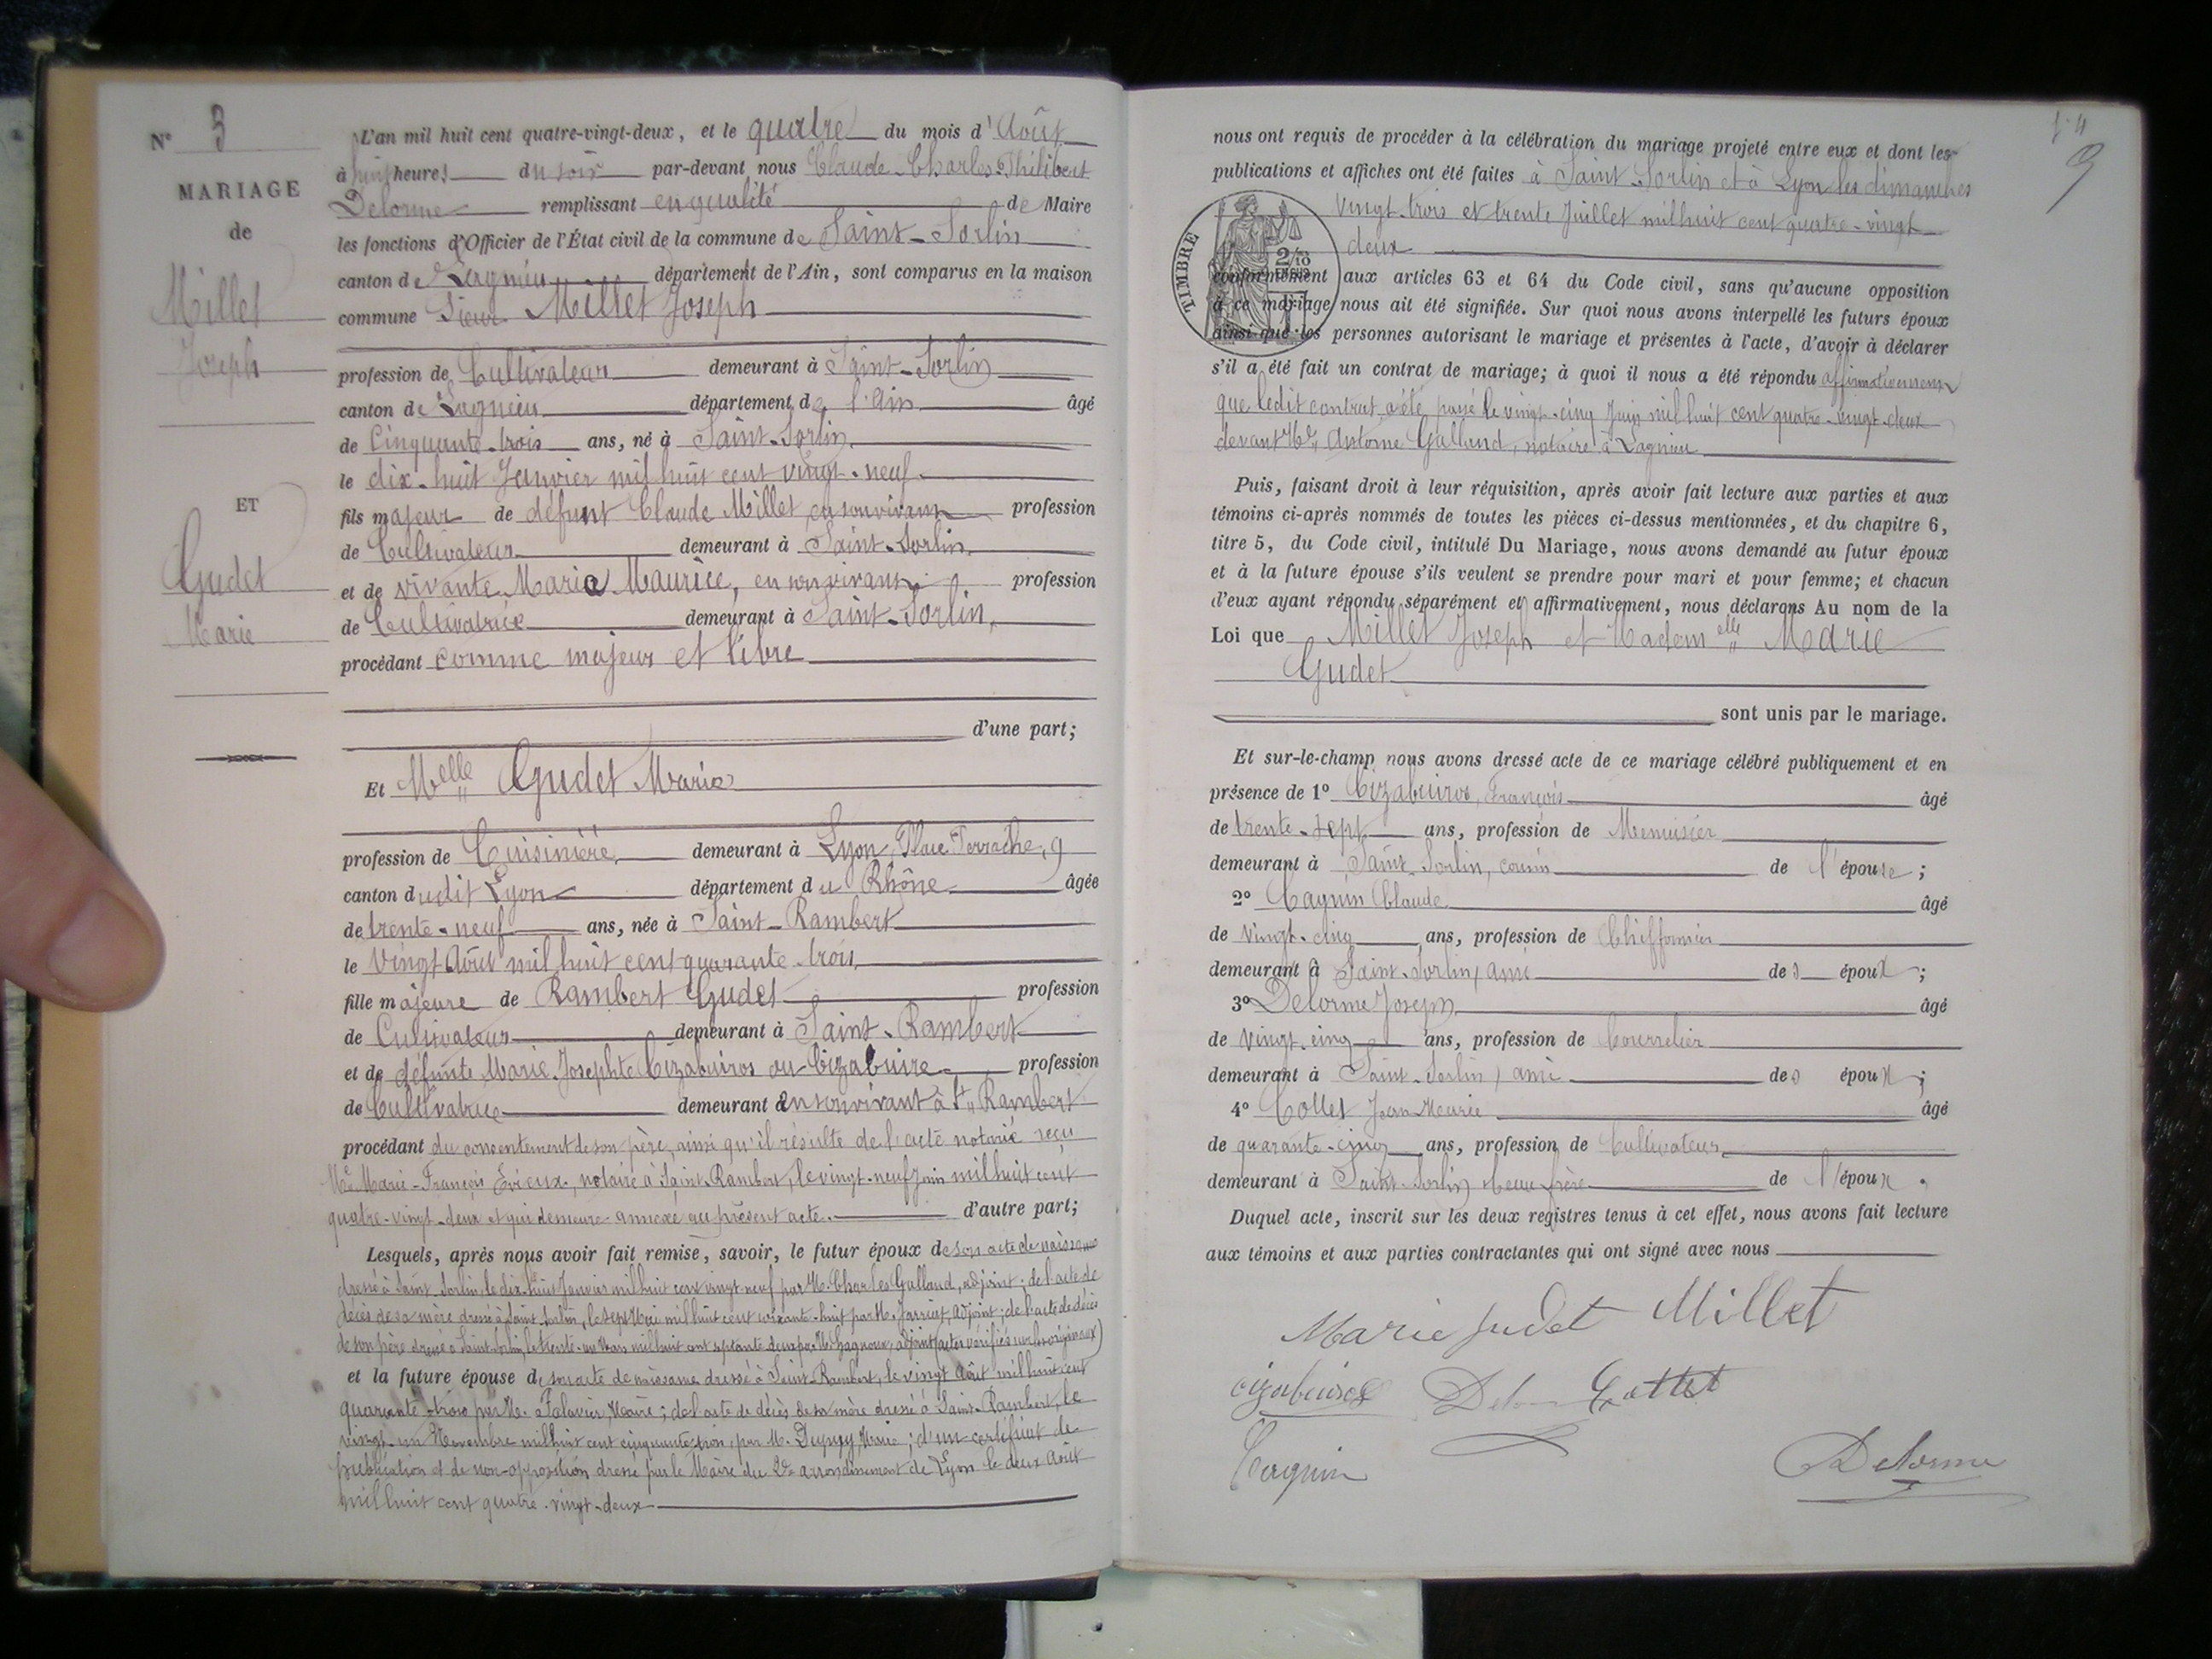 N° 3
MARIAGE
de
Millet
Joseph
ET
Gudet
Marie
L'an mil huit cent quatre-vingt-deux, et le quatre du mois d'Août
à huit heures du soir par-devant nous Claude Charles Philibert
Delorme remplissant en qualité de Maire
les fonctions d'Officier de l'État civil de la commune de Saint-Sorlin
canton de Lagnieu département de l'Ain, sont comparus en la maison
commune Sieur Millet Joseph
profession de Cultivateur demeurant à Saint-Sorlin
canton de Lagnieu département de l'Ain âgé
de Cinquante-trois ans, né à Saint-Sorlin
le dix-huit Janvier mil huit cent vingt-neuf
fils majeur de défunt Claude Millet, en son vivant profession
de Cultivateur demeurant à Saint-Sorlin
et de vivante Marie Maurice, en son vivant profession
de Cultivatrice demeurant à Saint-Sorlin,
procédant comme majeur et libre
d'une part;
Et Melle Gudet Marie
profession de Cuisinière, demeurant à Lyon, Place Perrache, 9
canton dudit Lyon département du Rhône âgée
de trente-neuf ans, née à Saint-Rambert
le Vingt Août mil huit cent quarante-trois
fille majeure de Rambert Gudet profession
de Cultivateur demeurant à Saint-Rambert
et de défunte Marie Josephte Cizabuiros ou Cizabuire profession
de Cultivatrice demeurant en son vivant à St Rambert
procédant du consentement de son père, ainsi qu'il résulte de l'acte notarié reçu
Me Marie-François Evieux, notaire à Saint-Rambert, le vingt-neuf Juin mil huit cent
quatre-vingt-deux et qui demeure annexé au présent acte. d'autre part;
Lesquels, après nous avoir fait remise, savoir, le futur époux de son acte de naissance
dressé à Saint-Sorlin, le dix-huit Janvier mil huit cent vingt-neuf par M. Charles Galland, adjoint; de l'acte de
décès de sa mère dressé à Saint-Sorlin, le sept Mai mil huit cent soixante-huit par M. Jarricot, Adjoint; de l'acte de décès
de son père dressé à Saint-Sorlin, le trente-un Mars mil huit cent septante deux par M. Gagnoux, adjoint (actes vérifiés sur les originaux)
et la future épouse de son acte de naissance dressé à Saint-Rambert, le vingt Août mil huit cent
quarante-trois par M. Falavier, Maire; de l'acte de décès de sa mère dressé à Saint-Rambert, le
vingt-un Novembre mil huit cent cinquante-trois, par M. Dupuy, Maire; d'un certificat de
publication et de non-opposition dressé par le Maire du 2e arrondissement de Lyon le deux Août
mil huit cent quatre-vingt-deux
9
nous ont requis de procéder à la célébration du mariage projeté entre eux et dont les
publications et affiches ont été faites à Saint-Sorlin et à Lyon les dimanches
vingt-trois et trente Juillet mil huit cent quatre-vingt
deux
TIMBRE
conformément aux articles 63 et 64 du Code civil, sans qu'aucune opposition
à ce mariage nous ait été signifiée. Sur quoi nous avons interpellé les futurs époux
ainsi que les personnes autorisant le mariage et présentes à l'acte, d'avoir à déclarer
s'il a été fait un contrat de mariage; à quoi il nous a été répondu affirmativement
que ledit contrat a été passé le vingt-cinq Juin mil huit cent quatre-vingt-deux
devant Me Antoine Galland, notaire à Lagnieu
Puis, faisant droit à leur réquisition, après avoir fait lecture aux parties et aux
témoins ci-après nommés de toutes les pièces ci-dessus mentionnées, et du chapitre 6,
titre 5, du Code civil, intitulé Du Mariage, nous avons demandé au futur époux
et à la future épouse s'ils veulent se prendre pour mari et pour femme; et chacun
d'eux ayant répondu séparément et affirmativement, nous déclarons Au nom de la
Loi que Millet Joseph et Mademelle Marie
Gudet
sont unis par le mariage.
Et sur-le-champ nous avons dressé acte de ce mariage célébré publiquement et en
présence de 1° Cizabuiros, François âgé
de trente-sept ans, profession de Menuisier
demeurant à Saint-Sorlin, cousin de l'épouse;
2° Caquin Claude âgé
de vingt-cinq ans, profession de Chiffonnier
demeurant à Saint-Sorlin, ami des époux;
3° Delorme Joseph âgé
de vingt-cinq ans, profession de Bourrelier
demeurant à Saint-Sorlin, ami des époux;
4° Collet Jean Marie âgé
de quarante-cinq ans, profession de Cultivateur
demeurant à Saint-Sorlin, beau-frère de l'époux.
Duquel acte, inscrit sur les deux registres tenus à cet effet, nous avons fait lecture
aux témoins et aux parties contractantes qui ont signé avec nous
Marie Judet Millet
Cizabuiros Delorme Collet
Caquin Delorme